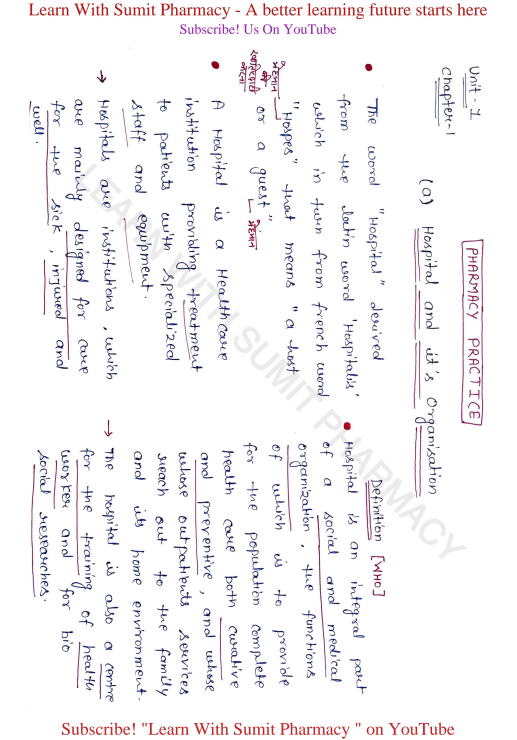 Learn With Sumit Pharmacy - A better learning future starts here
Subscribe! Us On YouTube
Unit - 1
Chapter-1
PHARMACY PRACTICE
(a) Hospital and it's Organisation
• The word "Hospital" derived
from the Latin word 'Hospitalis',
which in turn from french word
"Hospes" that means "a host
or a guest"
मेहमान
की
खातिरदारी
करना
मेहमान
• A Hospital is a Healthcare
institution providing treatment
to patients with specialized
staff and equipment.
→ Hospitals are institutions, which
are mainly designed for care
for the sick, injured and
well.
Definition [WHO]
• Hospital is an integral part
of a social and medical
organization, the functions
of which is to provide
for the population complete
health care both curative
and preventive, and whose
whose outpatients services
reach out to the family
and its home environment.
→ The hospital is also a centre
for the training of health
worker and for bio
social researches.
LEARN WITH SUMIT PHARMACY
Subscribe! "Learn With Sumit Pharmacy " on YouTube